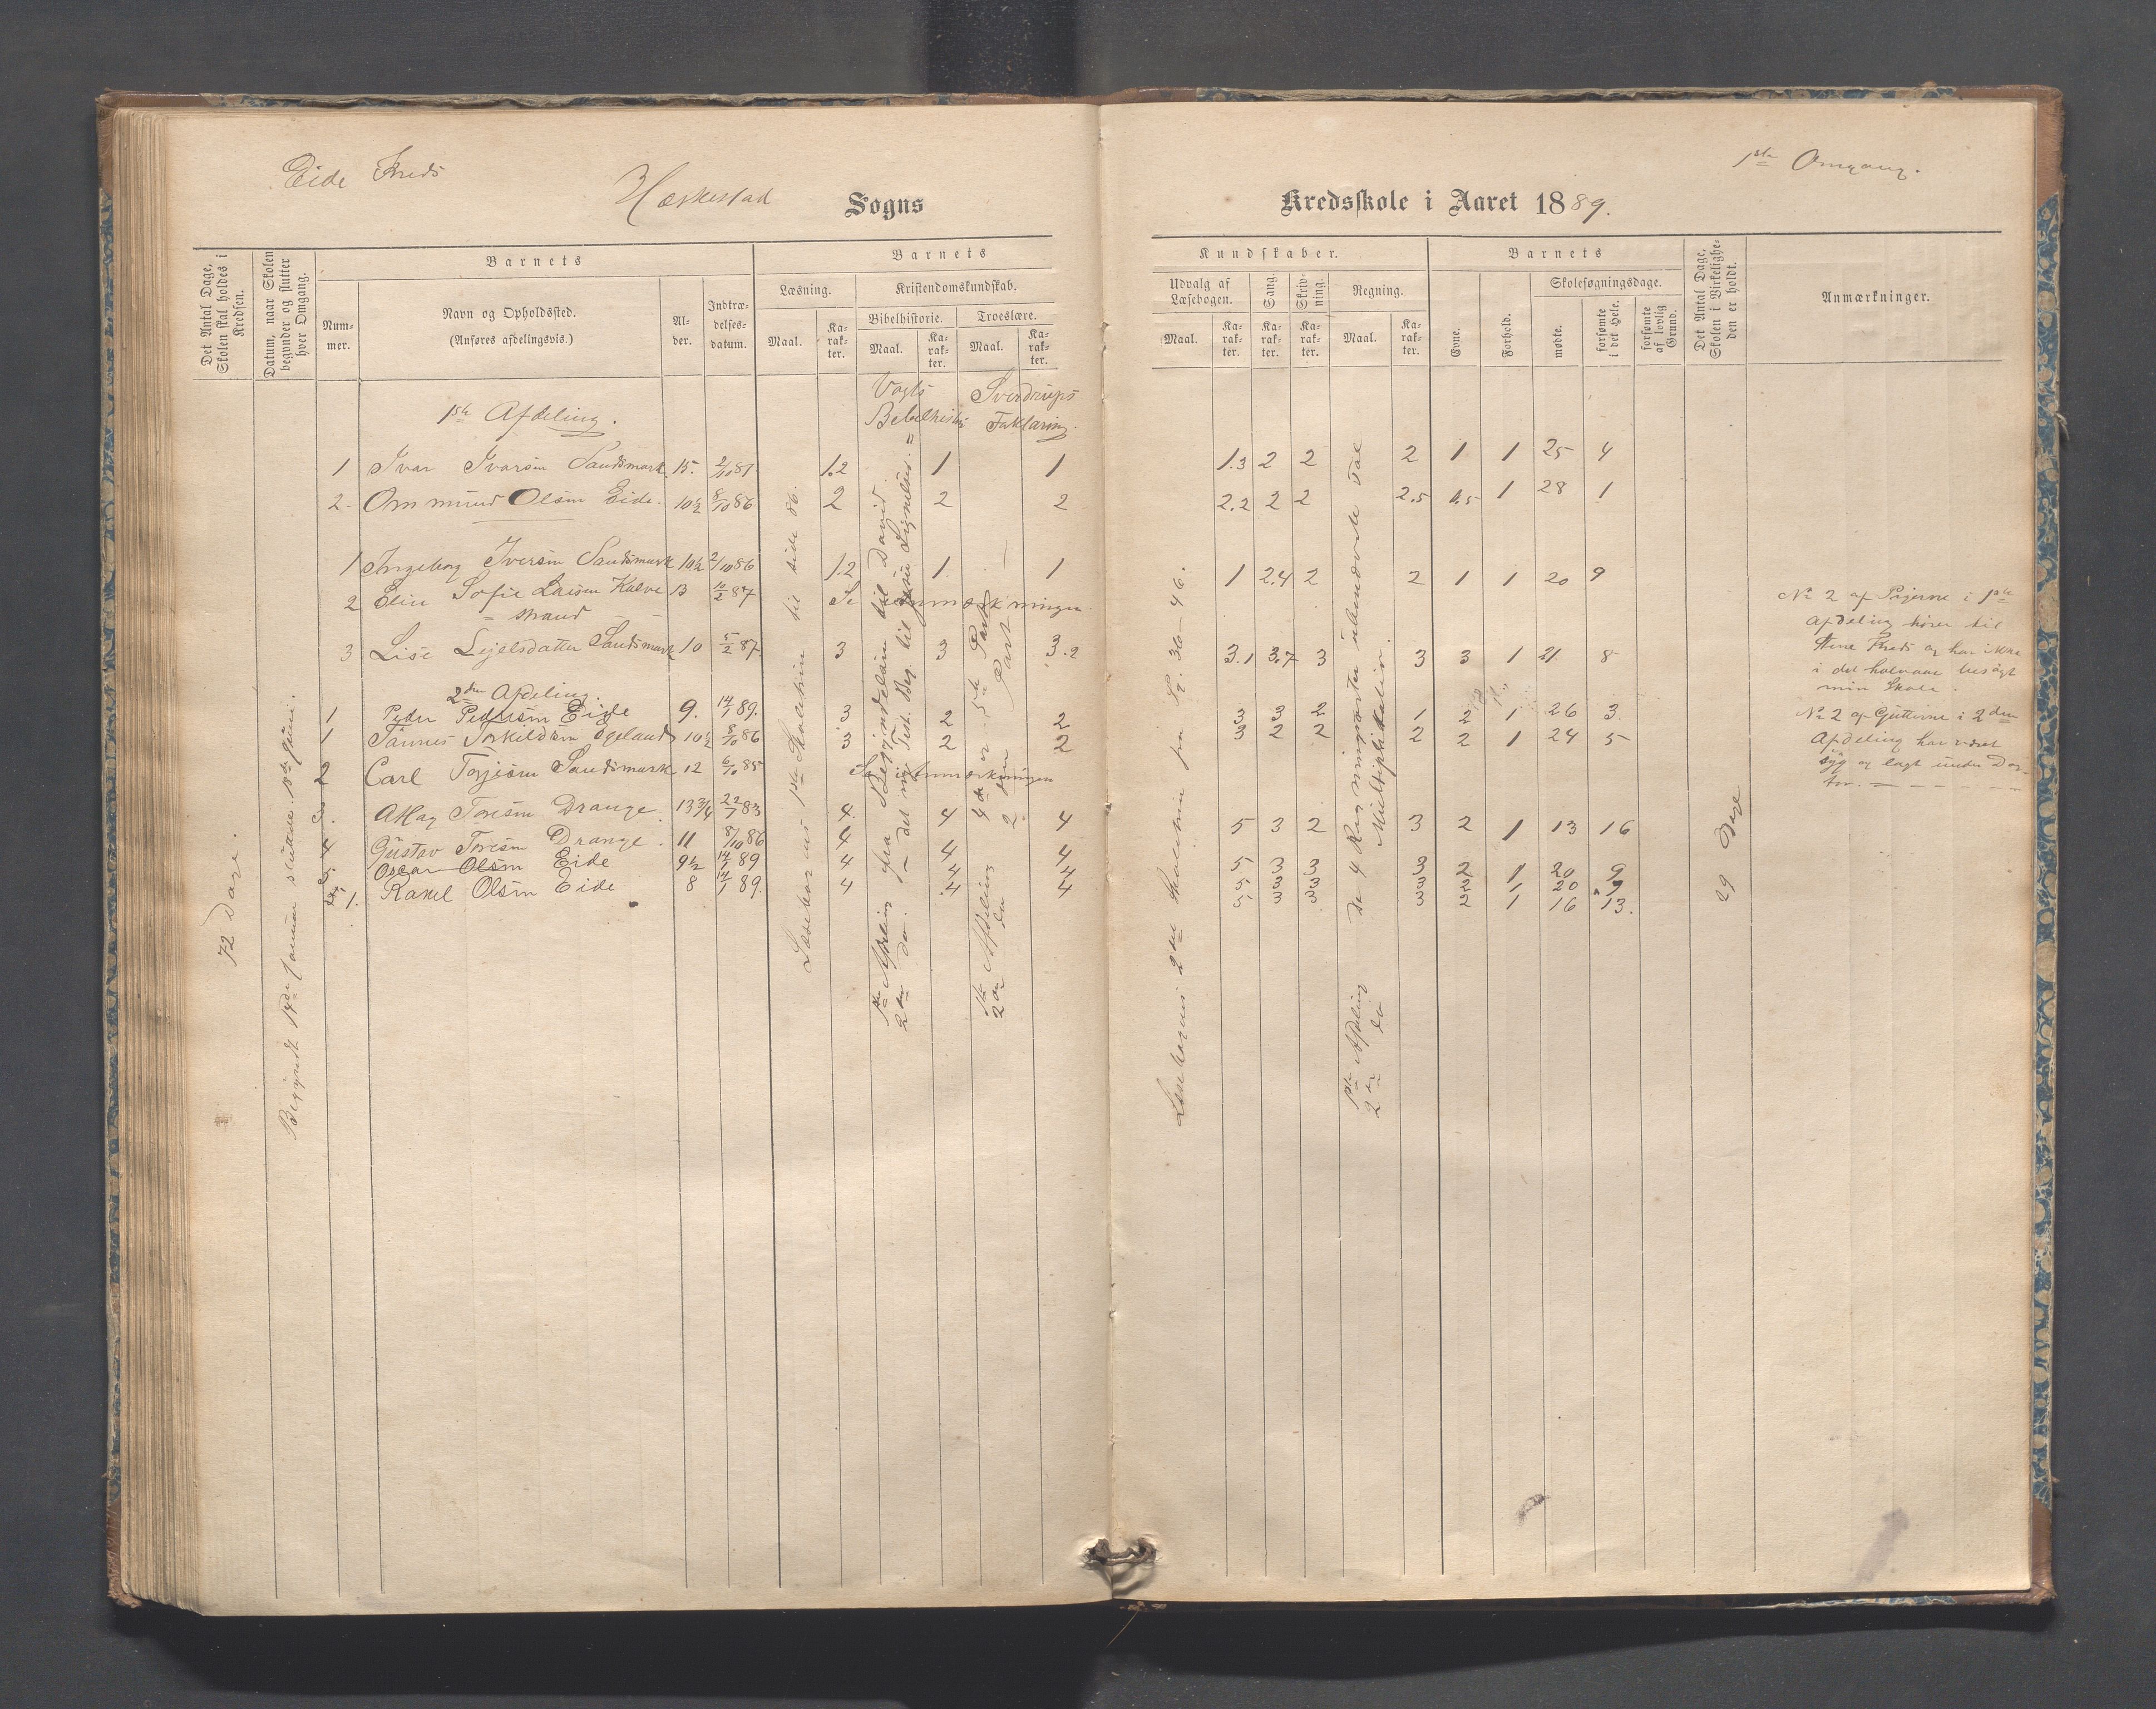 Eide Kreds
Heskestad Sogns
Kredsskole i Aaret 1889.
1ste Omgang.
Det Antal Dage, Skolen skal holdes i Kredsen.
Datum, naar Skolen begynder og slutter hver Omgang.
Barnets
Nummer.
Navn og Opholdssted.
(Anføres afdelingsvis.)
Alder.
Indtrædelsesdatum.
Barnets
Læsning.
Maal.
Karakter.
Kristendomskundskab.
Bibelhistorie.
Maal.
Karakter.
Troeslære.
Maal.
Karakter.
Kundskaber.
Udvalg af Læsebogen.
Maal.
Karakter.
Sang.
Karakter.
Skrivning.
Karakter.
Regning.
Maal.
Karakter.
Barnets
Evne.
Forhold.
Skolesøgningsdage.
mødte.
forsømte i det Hele.
forsømte af lovlig Grund.
Det Antal Dage, Skolen i Virkeligheden er holdt.
Anmærkninger.
Vogts Sverdrups
1ste Afdeling.
1 Ivar Ivarsen Sandsmark 15. 2/10 87 1.2 1 1 1.3 2 2 2 1 1 25 4
2 Ommund Olsen Eide. 10½ 8/10 86 2 2 2 2.2 2 2 2.5 1.5 1 28 1
1 Ingeborg Iversen Sandsmark 10½ 2/10 86 1.2 1 1 1 2.4 2 2 1 1 20 9
2 Elin Sofie Larsen Kalvestrand 13 10/2 87 Se Anmærkningen.
3 Lise Sandsmark 10 5/2 87 3 3 3.2 3.1 3.7 3 3 3 1 21 8
2den Afdeling.
1 Peder Pedersen Eide 9. 14/1 89. 3 2 2 3 3 2 1 2 1 26 3
1 Tønnes Torkildsen Egeland 10½ 8/10 86 3 2 2 3 2 2 2 2 1 24 5
2 Carl Torjesen Sandsmark 12 6/10 85 Se Anmærkningen
3. Toresen Drange 13¾ 22/7 83 4 4 4 5 3 2 3 2 1 13 16
4 Gustav Toresen Drange. 11 8/10 86 4 4 4 5 3 3 3 2 1 20 9
5 Oscar Olsen Eide 9½ 14/1 89 4 4 4 5 3 3 3 2 1 20 9
1. Rakel Olsen Eide 8 14/1 89. 4 4 4 5 3 3 3 2 1 16 13.
72 Dage.
Begyndt 14de Januar sluttede 18de Juni.
Læsebogens 1ste Skoletrin til side 86.
1ste Afdeling fra Begyndelsen til David.
2den do. det nye Test. Beg. til Jesu Lignelser.
1ste Afdeling 4de og 5te Part
2den do 2den Part
Læsebogens 2det Skoletrin fra L. 36-46.
1ste Afdeling De 4 Regningsarter i ubenævnte Tal
2den do Multiplikation.
29 Dage
No 2 af Pigerne i 1ste
Afdeling hører til
Kreds og har ikke
i det halvaar besøgt
min Skole.
No 2 af Gutterne i 2den
Afdeling har været
syg og lagt under Doctor.